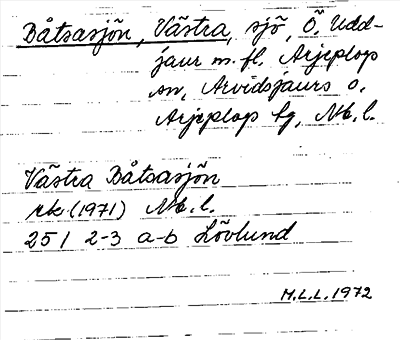 Båtsasjön, Västra, sjö, Ö. Udd-
jaur m. fl. Arjeplop
sn, Arvidsjaurs o.
Arjeplop tg, Nb. l.
Västra Båtsasjön
rk (1971) Nb. l.
25 I 2-3 a-b Lövlund
M.L.L. 1972